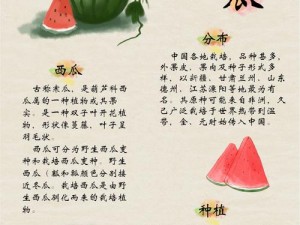 瓜
西瓜
古称寒瓜，是葫芦科西
瓜属的一种植物或其果
实。是一种双子叶开花植
物，形状像蔓藤，叶子呈
羽毛状。
西瓜可分为野生西瓜变
种和栽培西瓜变种，野生
西瓜（瓤和瓤颜色分别接
近冬瓜。栽培西瓜是由野
生西瓜驯化而来的栽培植
物。
分布
中国各地栽培，品种甚多，
外果皮、果肉及种子形式多
样，以新疆、甘肃兰州、山东
德州、江苏溧阳等地最为有
名。其原种可能来自非洲，久
已广泛栽培于世界热带到温
带，金、元时始传入中国。
种植